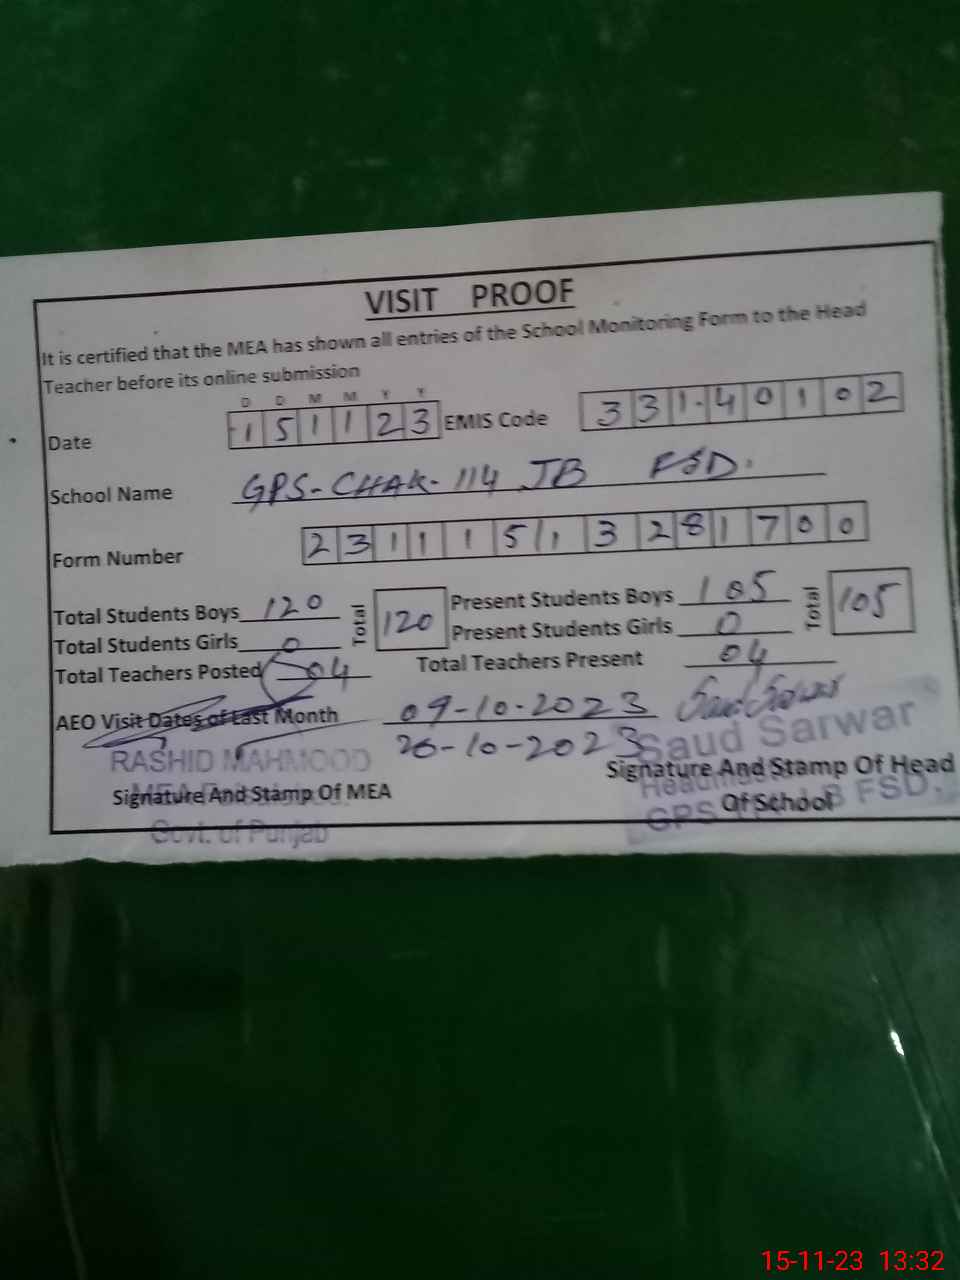 VISIT PROOF
It is certified that the MEA has shown all entries of the School Monitoring Form to the Head
Teacher before its online submission
D D M M Y Y
Date 151123 EMIS Code 331-40102
School Name GPS-CHAK-114 JB FSD.
Form Number 23111513281700
Total Students Boys 120 Total 120 Present Students Boys 105 Total 105
Total Students Girls 0 Present Students Girls 0
Total Teachers Posted 04 Total Teachers Present 04
AEO Visit Dates of Last Month 09-10-2023
26-10-2023
RASHID MAHMOOD Saud Sarwar
Signature And Stamp Of MEA Signature And Stamp Of Head
Of School
Govt. of Punjab GPS FSD.
15-11-23 13:32